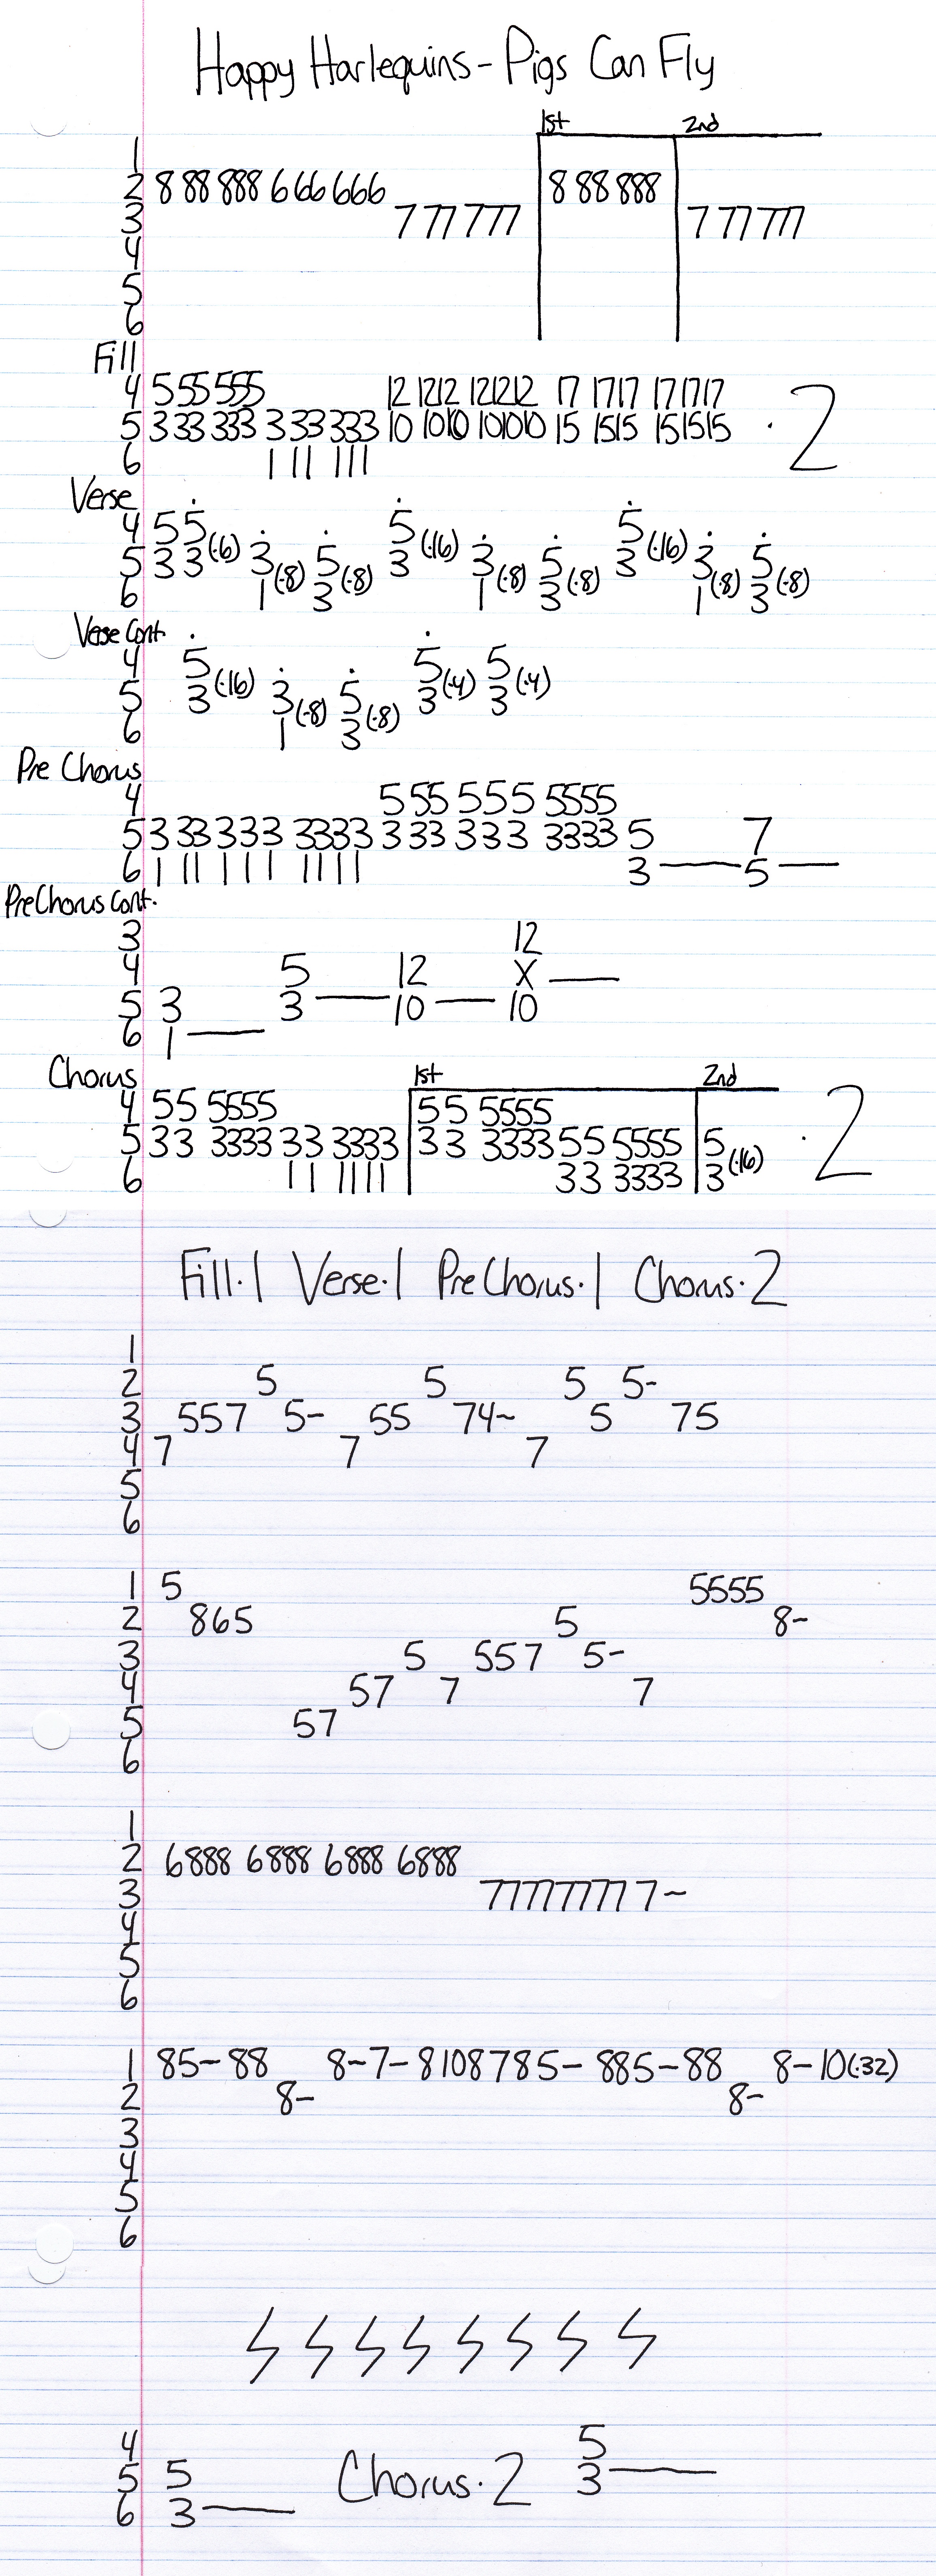 Happy Harlequins - Pigs Can Fly
1st 2nd
1
2 8 88 888 6 66 666 8 88 888
3 7 77 777 7 77 777
4
5
6
Fill
4 5 55 555 12 1212 121212 17 1717 171717
5 3 33 333 3 33 333 10 1010 101010 15 1515 151515 · 2
6 1 11 111
Verse
4 5 5 5 5
5 3 3 (·16) 3 5 3 (·16) 3 5 3 (·16) 3 5
6 1 (·8) 3 (·8) 1 (·8) 3 (·8) 1 (·8) 3 (·8)
Verse Cont.
4 5 5 5
5 3 (·16) 3 5 3 (·4) 3 (·4)
6 1 (·8) 3 (·8)
Pre Chorus
4 5 55 5 5 5 5555
5 3 33 3 3 3 3333 3 33 3 3 3 3333 5 7
6 1 11 1 1 1 1111 3 — 5 —
Pre Chorus Cont.
3 12
4 5 12 X —
5 3 3 — 10 — 10
6 1 —
Chorus 1st 2nd
4 5 5 5555 5 5 5555
5 3 3 3333 3 3 3333 3 3 3333 5 5 5555 5 · 2
6 1 1 1111 3 3 3333 3 (·16)
Fill·1 Verse·1 Pre Chorus·1 Chorus·2
1
2 5 5 5 5-
3 557 5- 55 74~ 5 75
4 7 7 7
5
6
1 5 5555
2 865 5 8~
3 5 557 5-
4 57 7 7
5 57
6
1
2 6888 6888 6888 6888
3 77777777 7~
4
5
6
1 85-88 8-7-8108785-885-88 8-10(·32)
2 8- 8-
3
4
5
6
4 5
5 5 Chorus·2 3 —
6 3 —